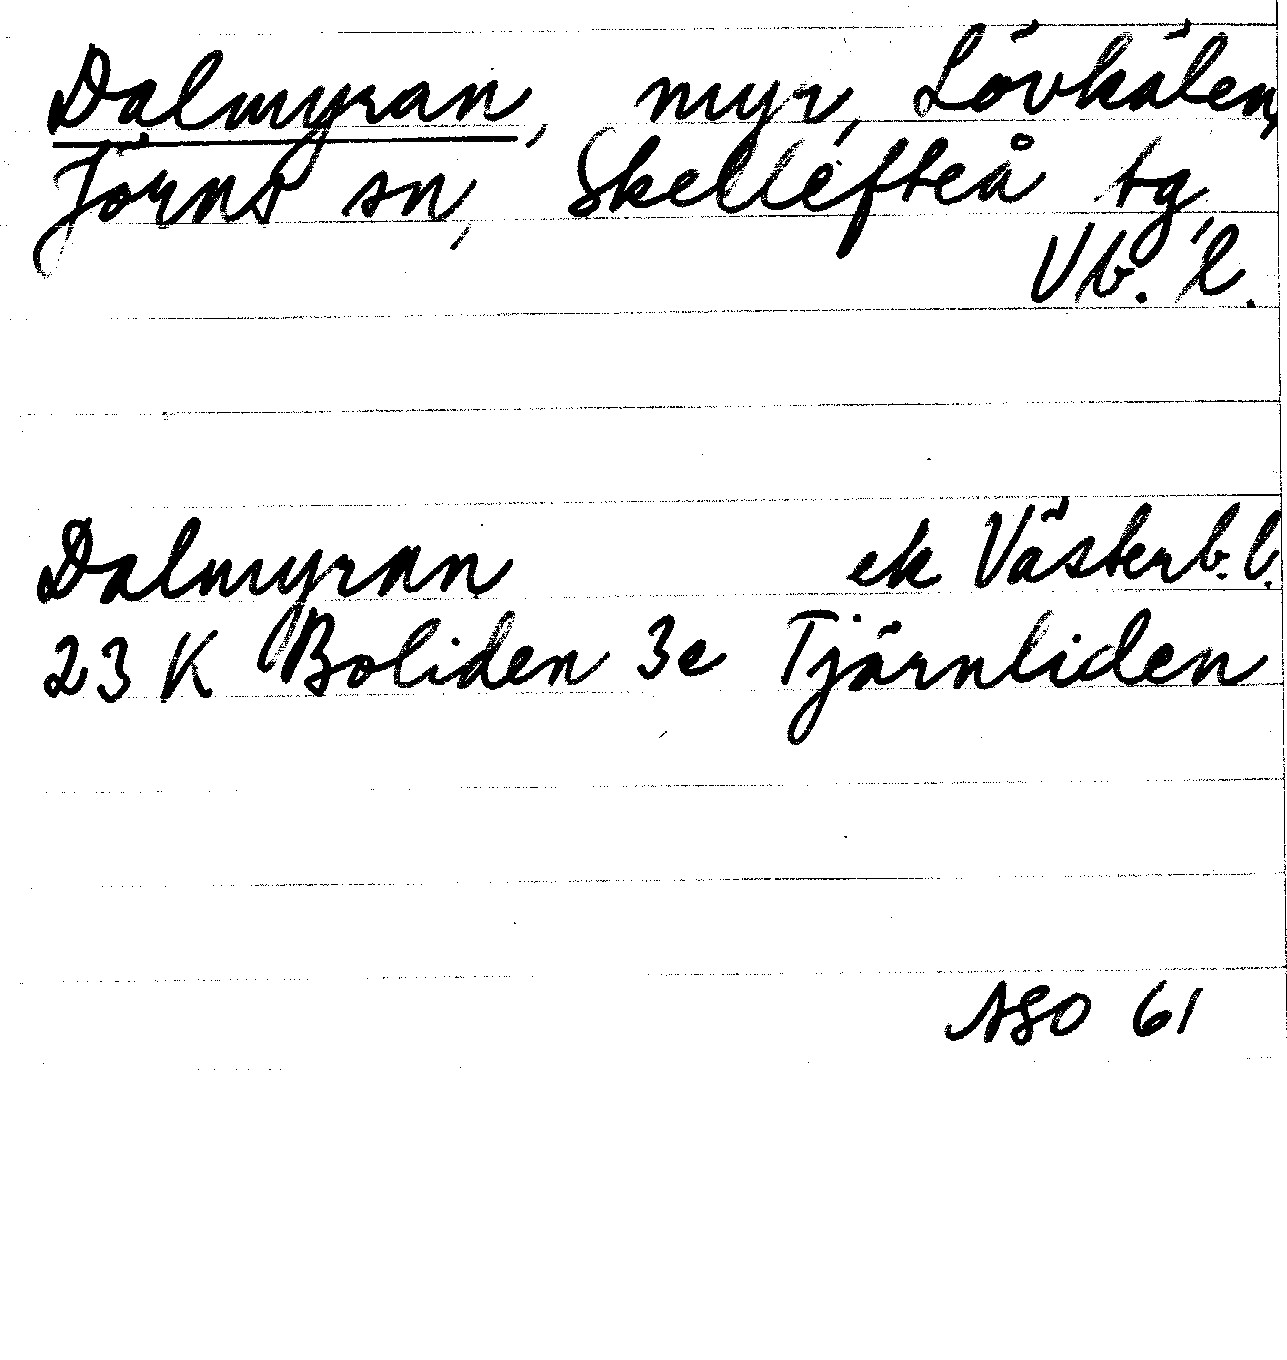 Dalmyran, myr, Lövkälen,
Jörns sn, Skellefteå tg,
Vb. l.
Dalmyran ek Västerb. l.
23 K Boliden 3e Tjärnliden
ASO 61